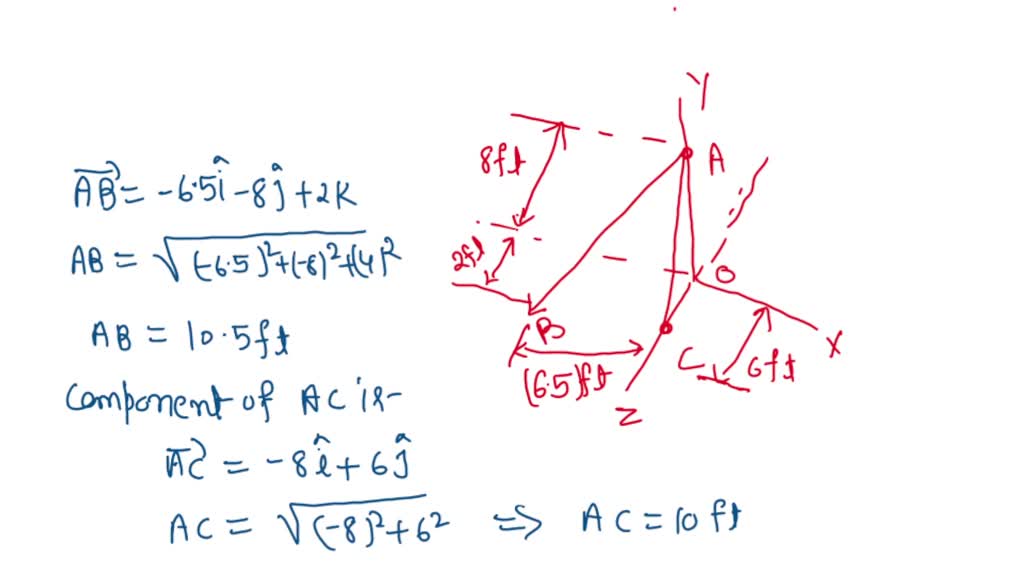 AB = -6.5i - 8j + 2K
AB = √(-6.5)²+(-8)²+(4)²
AB = 10.5ft
Component of AC is-
AC = -8i + 6j
AC = √(-8)²+6² ⇒ AC = 10 ft
Y
8ft
A
2ft
O
B
(6.5)ft
C
6ft
X
Z